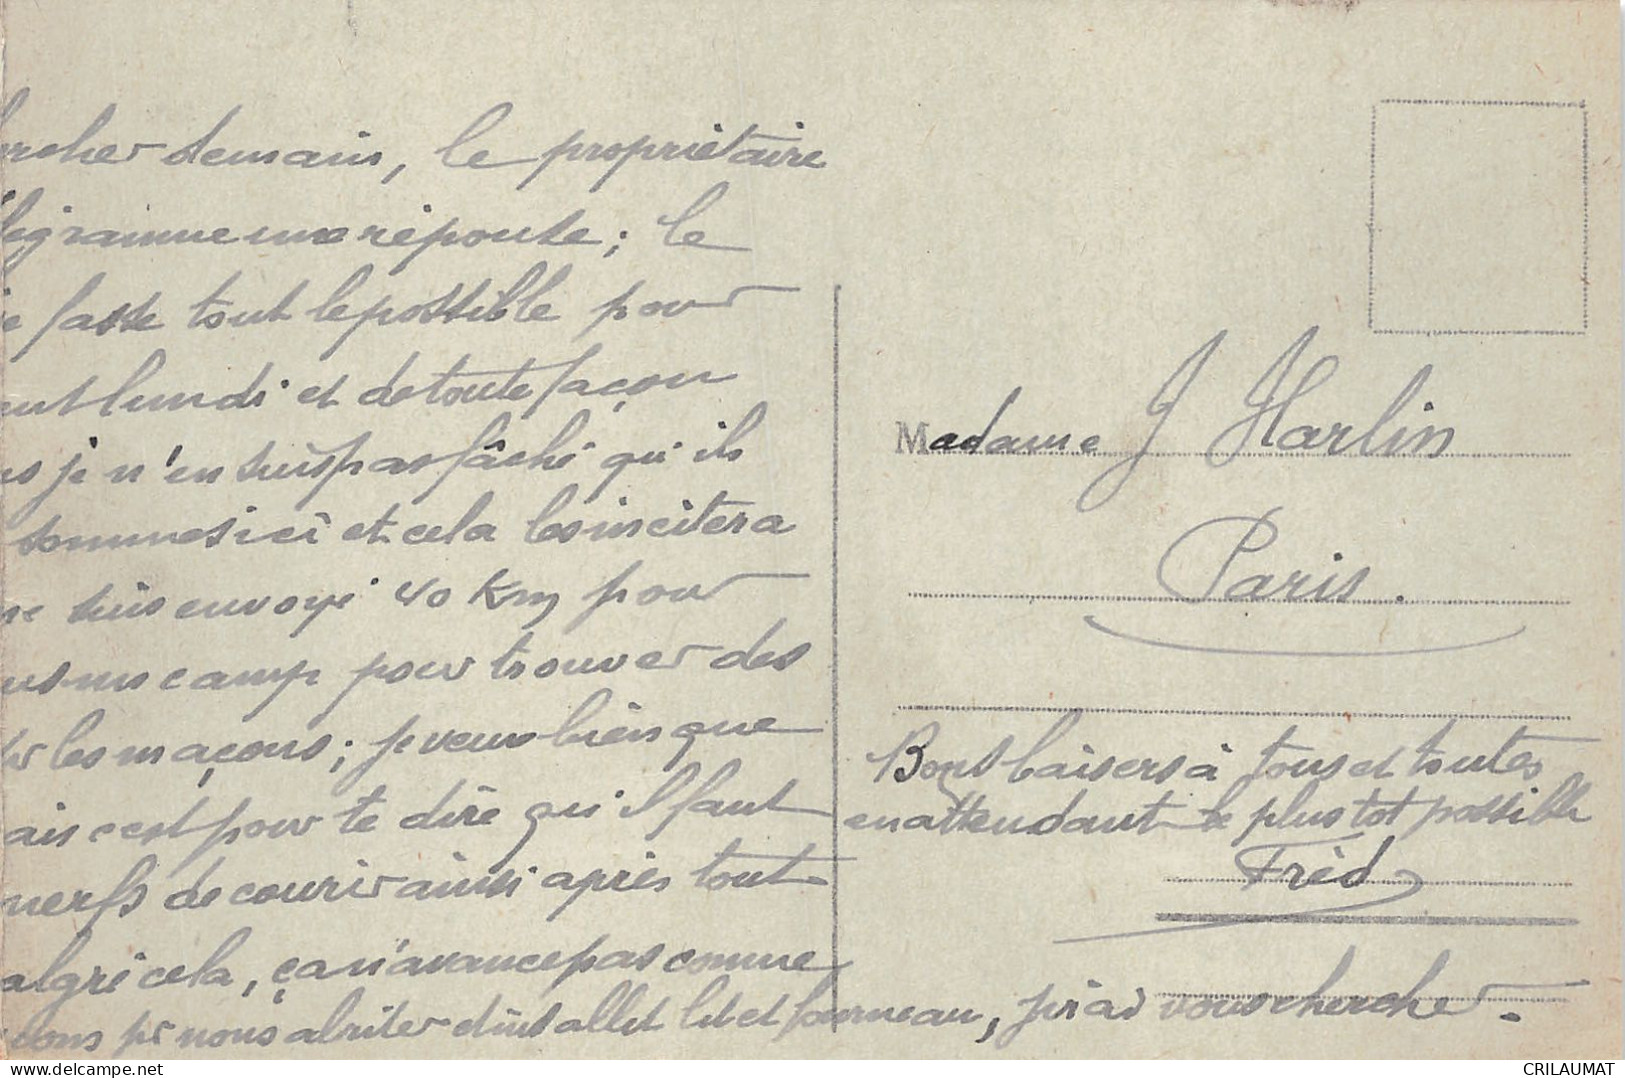 ercher demain, le propriétaire
légramme une réponse; le
je fasse tout le possible pour
lundi et de toute façon
je n'en suis pas fâché qu'ils
sommes ici et cela les incitera
me suis envoyé 40 Km pour
camp pour trouver des
les maçons; je veux bien que
ais c'est pour te dire qu'il faut
nerfs de courir ainsi après tout
algré cela, ça n'avance pas comme
pr nous abriter et install lit et fourneau, j'irai vous chercher.
Madame J Harlin
Paris.
Bons baisers à tous et toutes
en attendant le plus tôt possible
Fréd
CRILAUMAT